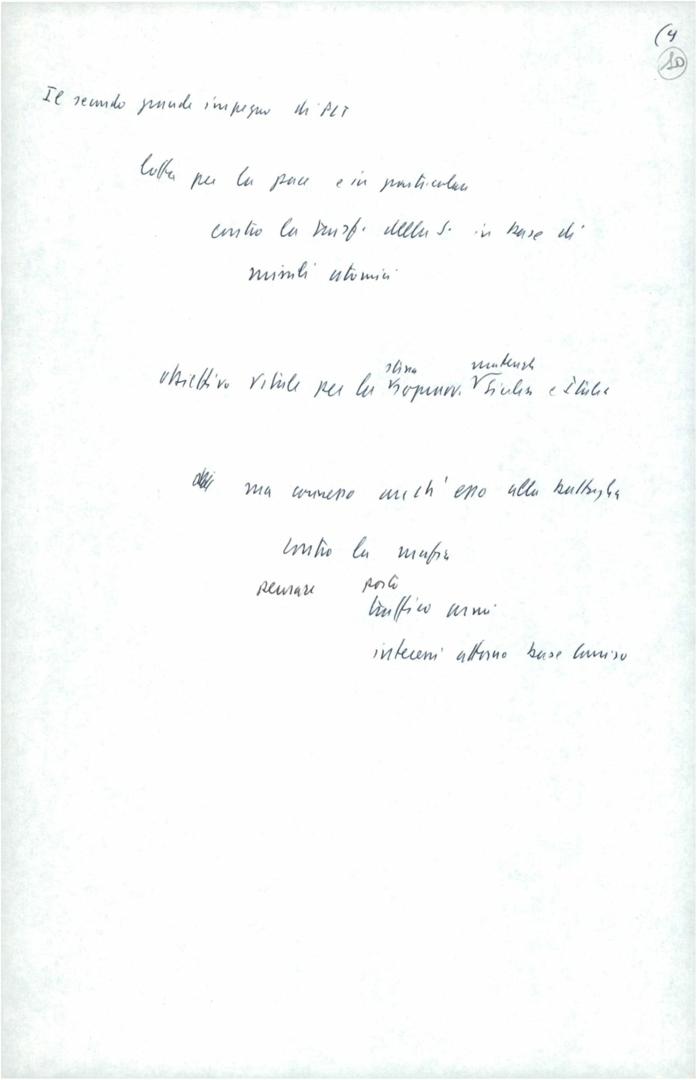 (4
10
Il secondo grande impegno di PLT
lotta per la pace e in particolare
contro la trasf. della S. in base di
missili atomici
obiettivo vitale per la stessa sopravv. materiale Sicilia e Italia
ma connesso anch'esso alla battaglia
contro la mafia
pensare
traffico armi
interessi attorno base Comiso